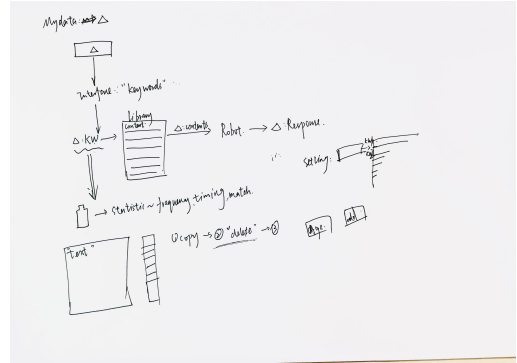 Mydata: △
△
Interface: "keywords"
Library
△: KW → content → △: contents → Robot. → △: Response.
setting:
→ Statistic ~ frequency, timing, match.
"text"
① copy → ② "delete" → ③
add